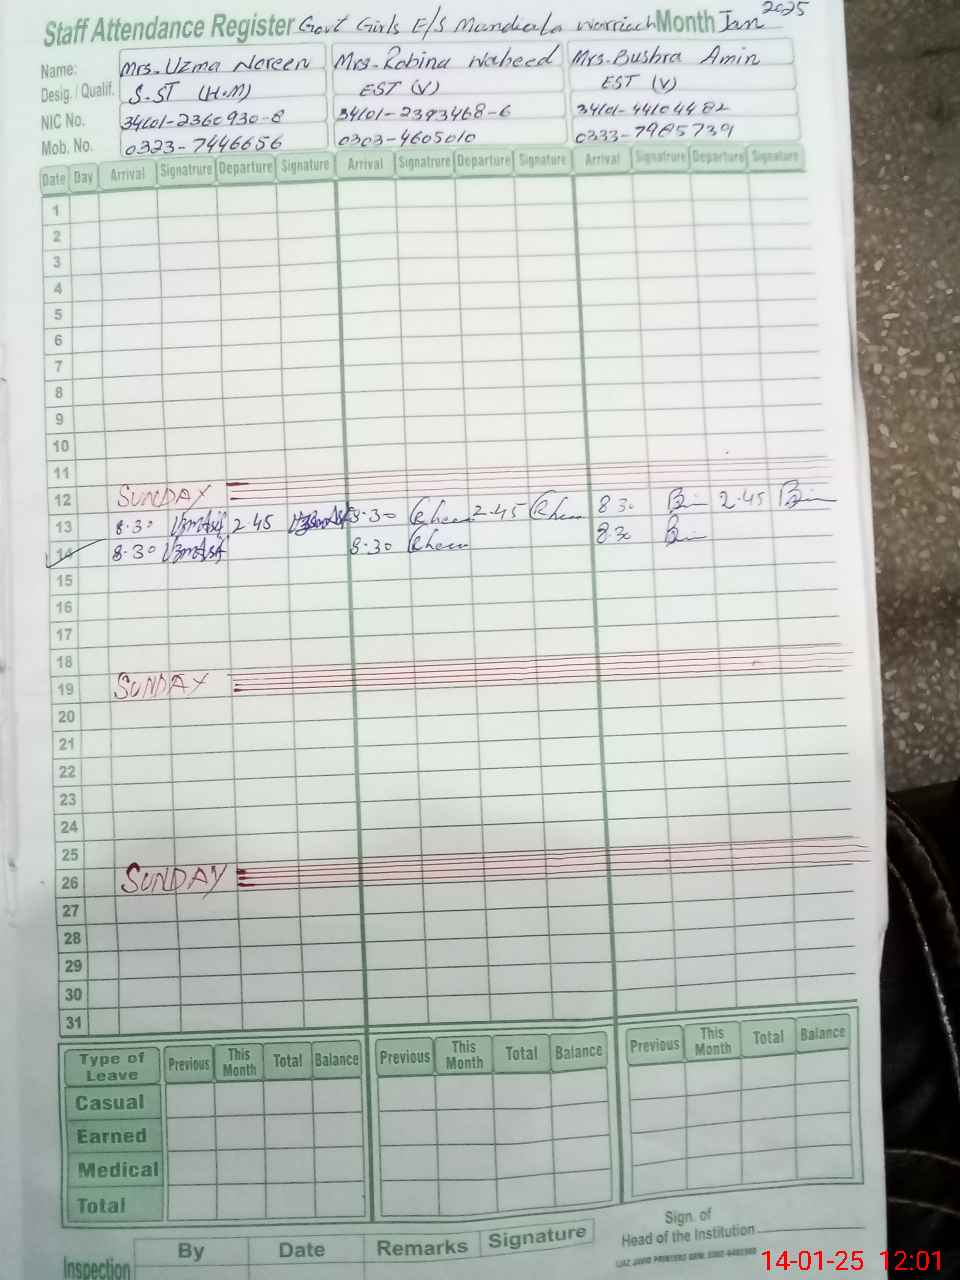 Staff Attendance Register Govt Girls E/S Mandiala Warriach Month Jan 2025
Name: Mrs. Uzma Noreen Mrs. Robina Waheed Mrs. Bushra Amin
Desig. / Qualif. S.ST (H.M) EST (V) EST (V)
NIC No. 34101-2360930-8 34101-2393468-6 34101-44104482
Mob. No. 0323-7446656 0303-4605010 0333-7985739
Date Day Arrival Signatrure Departure Signature Arrival Signatrure Departure Signature Arrival Signatrure Departure Signature
1
2
3
4
5
6
7
8
9
10
11
12 SUNDAY
13 8.30 2.45 8.30 2.45 8 30 2.45
14 8.30 8.30 8.30
15
16
17
18
19 SUNDAY
20
21
22
23
24
25
26 SUNDAY
27
28
29
30
31
Type of Leave Previous This Month Total Balance Previous This Month Total Balance Previous This Month Total Balance
Casual
Earned
Medical
Total
Inspection By Date Remarks Signature
Sign. of
Head of the Institution
14-01-25 12:01